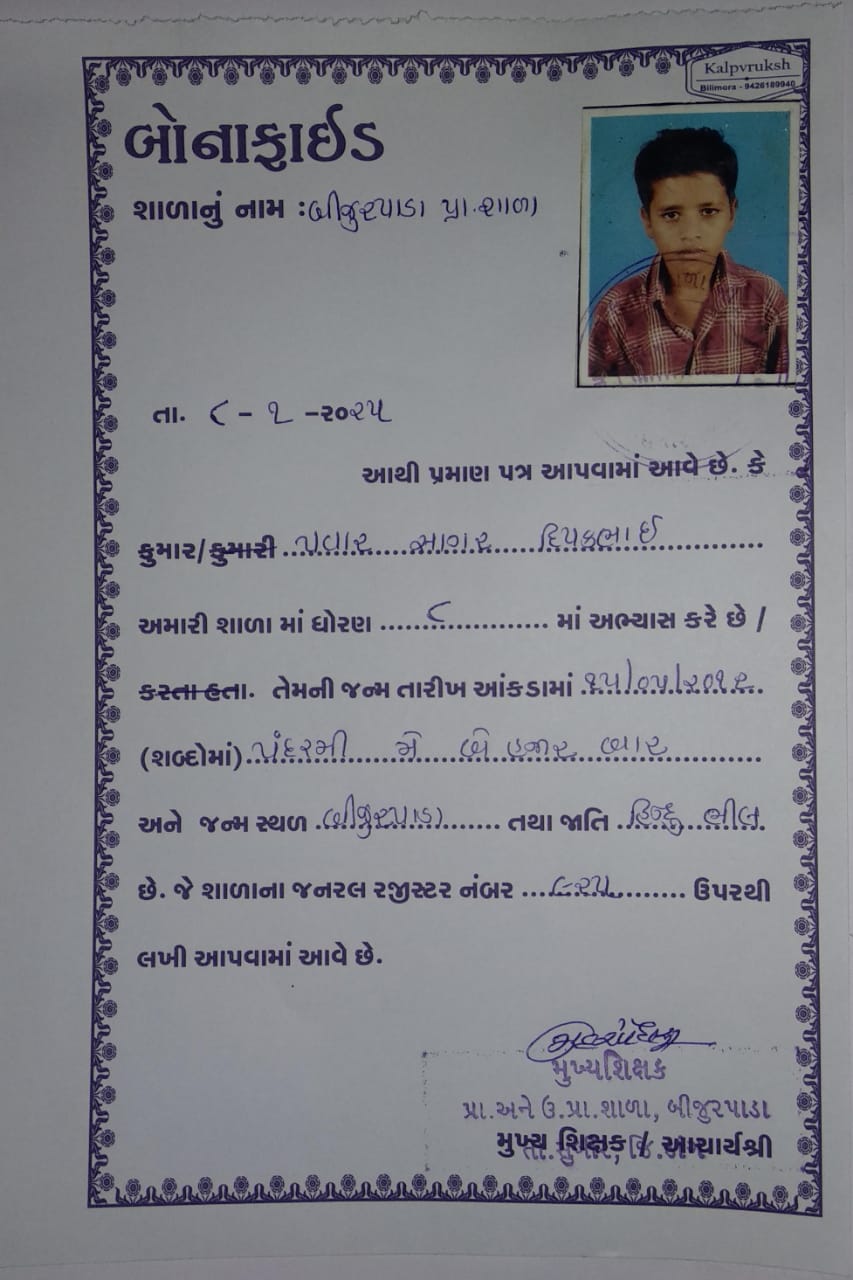 Kalpvruksh
Bilimora - 9426189940
બોનાફાઈડ
શાળાનું નામ : બીજુરપાડા પ્રા.શાળા
તા. ૮ - ૧ -૨૦૨૫
આથી પ્રમાણ પત્ર આપવામાં આવે છે. કે
કુમાર/કુમારી પવાર સાગર દિપકભાઈ
અમારી શાળા માં ધોરણ ૮ માં અભ્યાસ કરે છે /
કરતા હતા. તેમની જન્મ તારીખ આંકડામાં ૧૫/૦૫/૨૦૧૨
(શબ્દોમાં) પંદરમી મે બે હજાર બાર
અને જન્મ સ્થળ બીજુરપાડા તથા જાતિ હિન્દુ ભીલ
છે. જે શાળાના જનરલ રજીસ્ટર નંબર ૯૨૫ ઉપરથી
લખી આપવામાં આવે છે.
મુખ્યશિક્ષક
પ્રા.અને ઉ.પ્રા.શાળા, બીજુરપાડા
મુખ્ય શિક્ષક / આચાર્યશ્રી